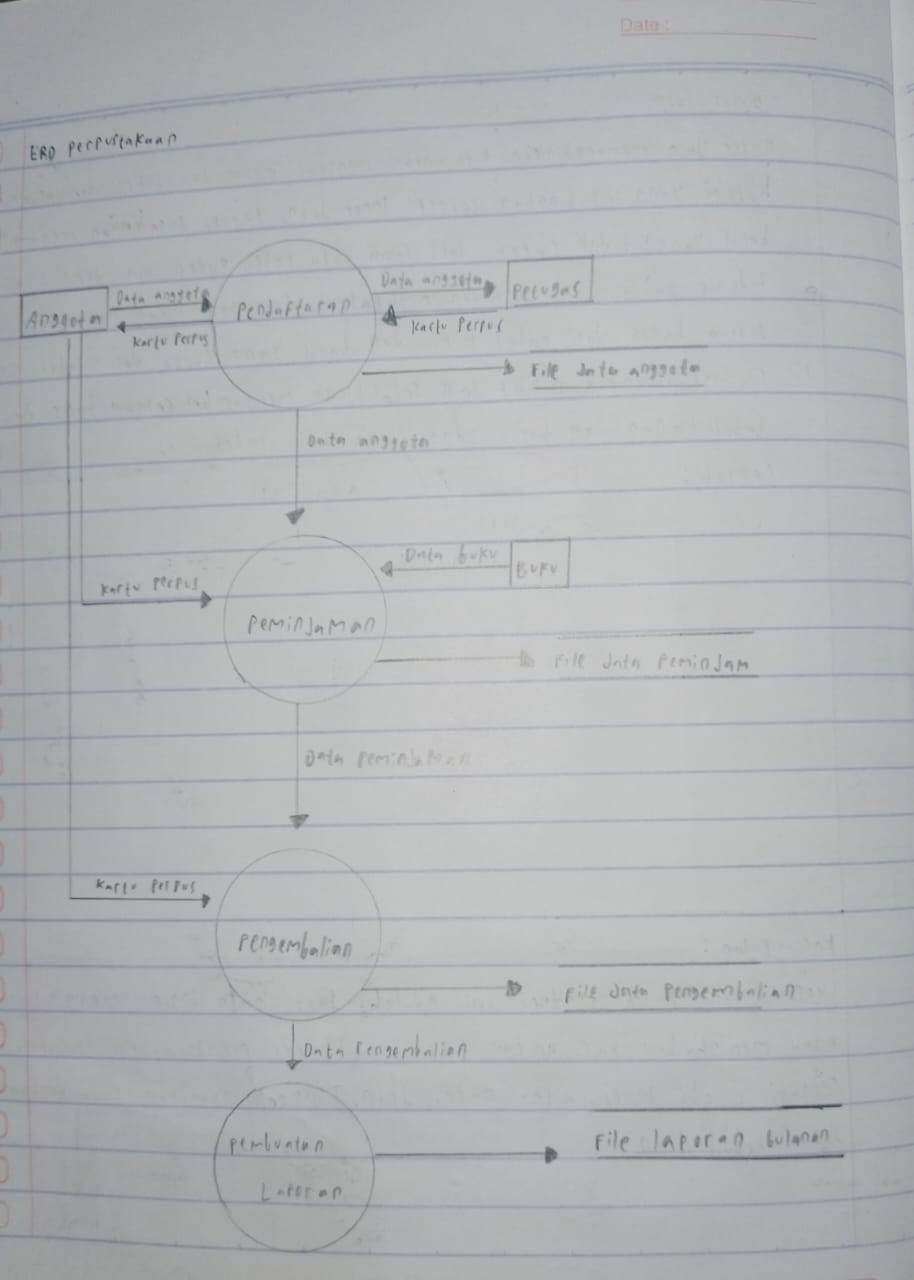 Date :
ERD perpustakaan
Anggota
Data anggota
Kartu Perpus
Pendaftaran
Data anggota
Kartu Perpus
Petugas
File data anggota
Data anggota
Kartu Perpus
Peminjaman
Data Buku
Buku
File data Peminjam
Data Peminjaman
Kartu Perpus
Pengembalian
File data Pengembalian
Data Pengembalian
Pembuatan
Laporan
File laporan bulanan